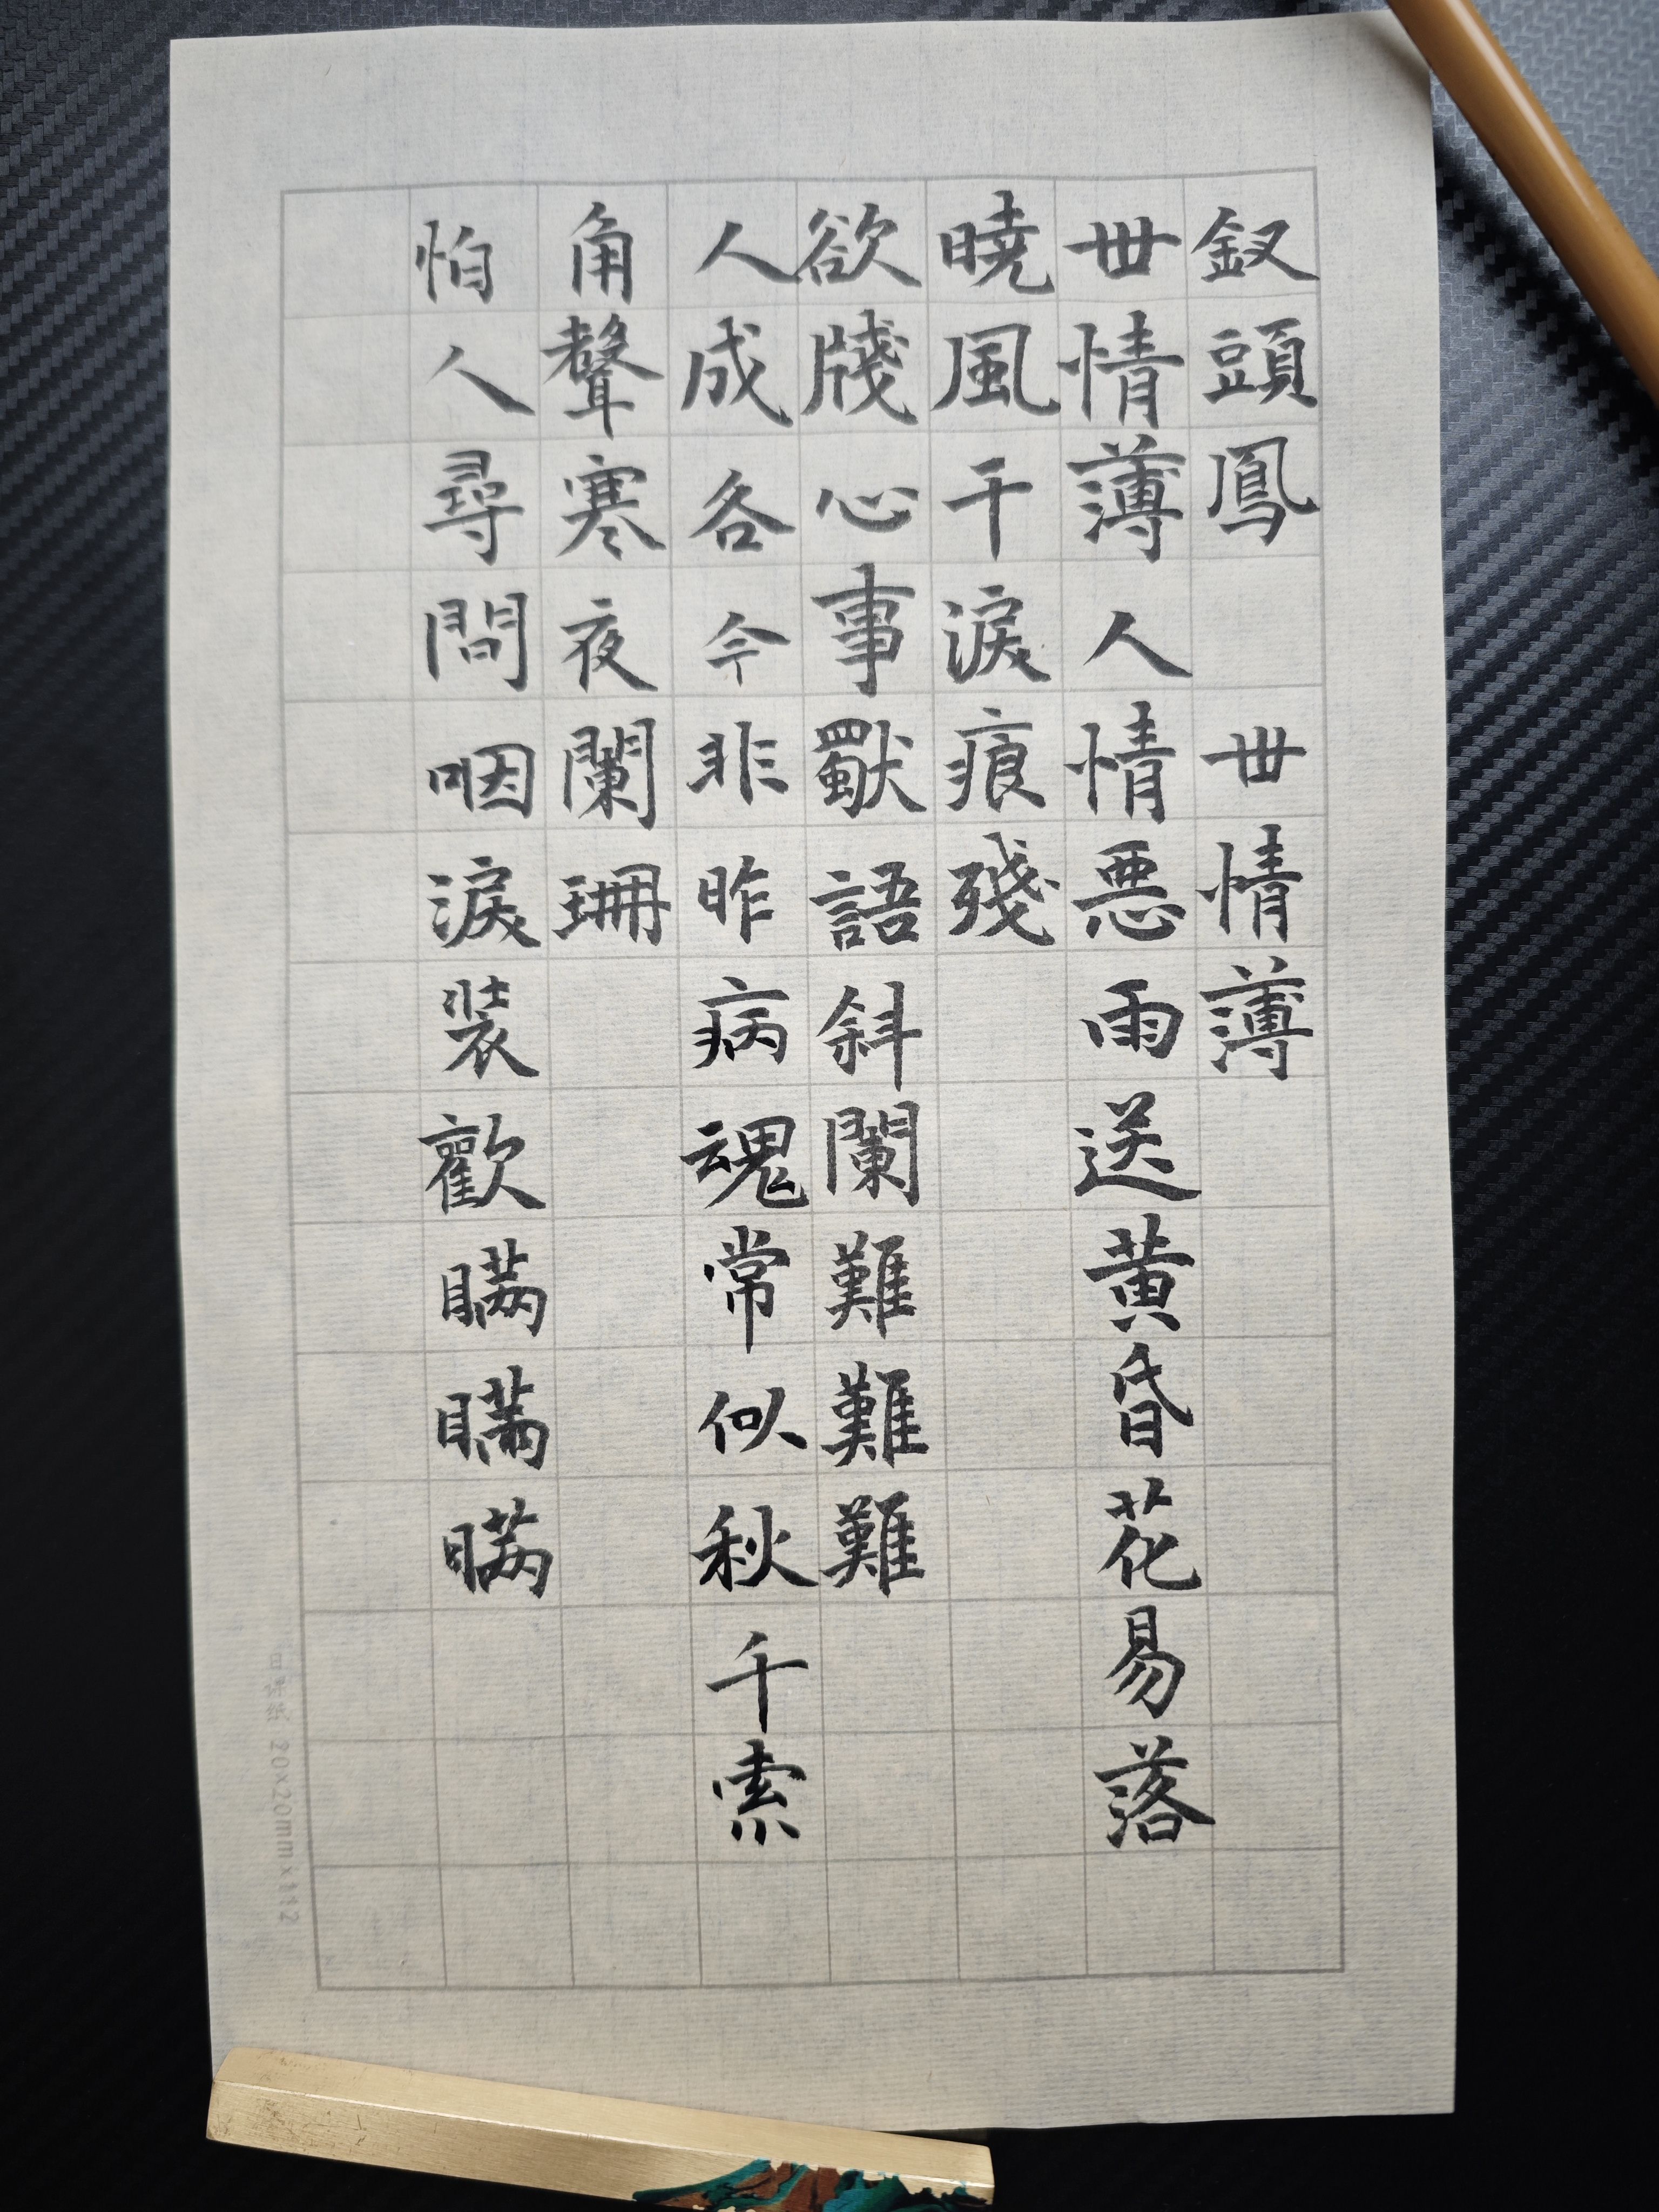 釵頭鳳　世情薄
世情薄人情惡雨送黃昏花易落
曉風干淚痕殘
欲牋心事獸語斜闌難難難
人成各今非昨病魂常似秋千索
角聲寒夜闌珊
怕人尋問咽淚裝歡瞞瞞瞞
20×20mm×112